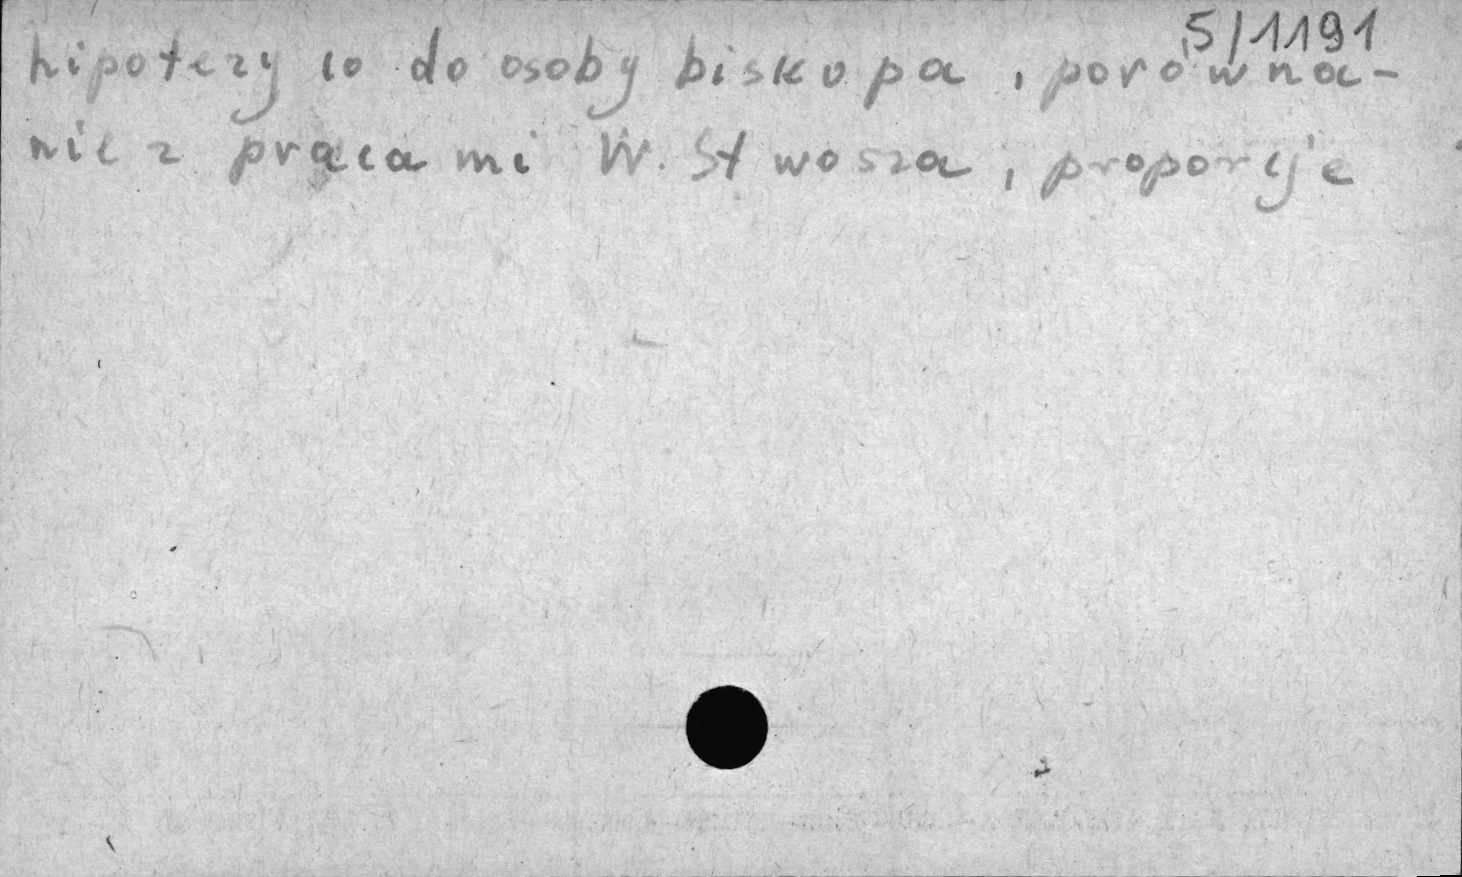 5/1191
hipotezy co do osoby biskupa, porówna-
nie z pracami W. Stwosza, proporcje